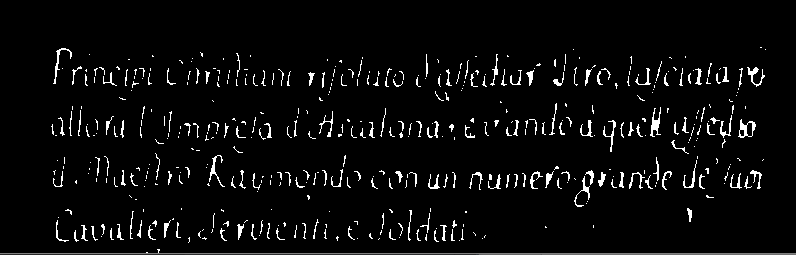 Principi Christiani risoluto d'assediar Tiro, lasciata pò
allora l'Impresa d'Ascalona; e v'andò à quell'assedio
il Maestro Raymondo con un numero grande de' suoi
Cavalieri, Servienti, e Soldati.